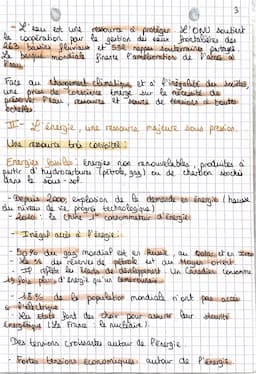 3
- L'eau est une ressource à protéger. L'ONU soutient
la coopération pour la gestion des eaux frontalières des
263 bassins fluviaux et 592 nappes souterraines partagés.
La banque mondiale finance l'amélioration de l'accès à
l'eau.
Face au changement climatique et à l'inégalité des sociétés,
une prise de conscience émerge sur la nécessité de
préserver l'eau, ressource et source de tensions à toutes
échelles
III - L'énergie, une ressource majeure sous pression.
Une ressource très convoitée :
Energies fossiles : énergies non renouvelables, produites à
partir d'hydrocarbures (pétrole, gaz) ou de charbon stockés
dans le sous-sol.
- Depuis 2000, explosion de la demande en énergie (hausse
du niveau de vie, progrès technologique)
la Chine 1er consommateur d'énergie
- Inégal accès à l'énergie :
- 50% du gaz mondial est en Russie, au Qatar, et en Iran
- Le % des réserves de pétrole est au Moyen-orient.
- Il reflète les niveaux de développement. Un Canadien consomme
fois plus d'énergie qu'un camerounais
- 15% de la population mondiale n'ont pas accès
à l'électricité
- Les états font des choix pour assurer leur sécurité
énergétique (La France : le nucléaire).
Des tensions croissantes autour de l'énergie
- Fortes tensions économiques autour de l'énergie.